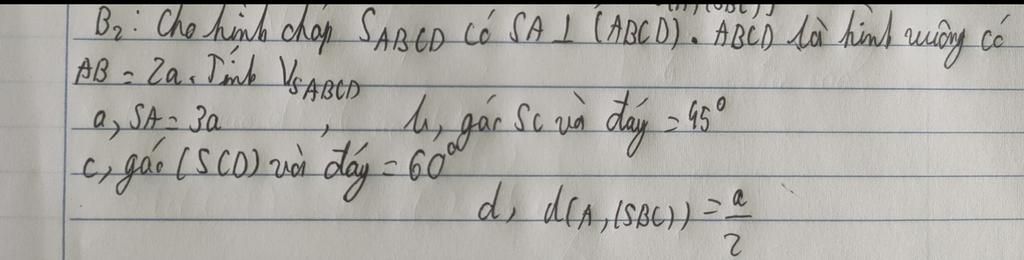 B₂: Cho hình chóp SABCD có SA ⊥ (ABCD). ABCD là hình vuông có
AB = 2a. Tính V_SABCD
a, SA = 3a , b, góc SC và đáy = 45°
c, góc (SCD) với đáy = 60°
d, d(A, (SBC)) = a/2